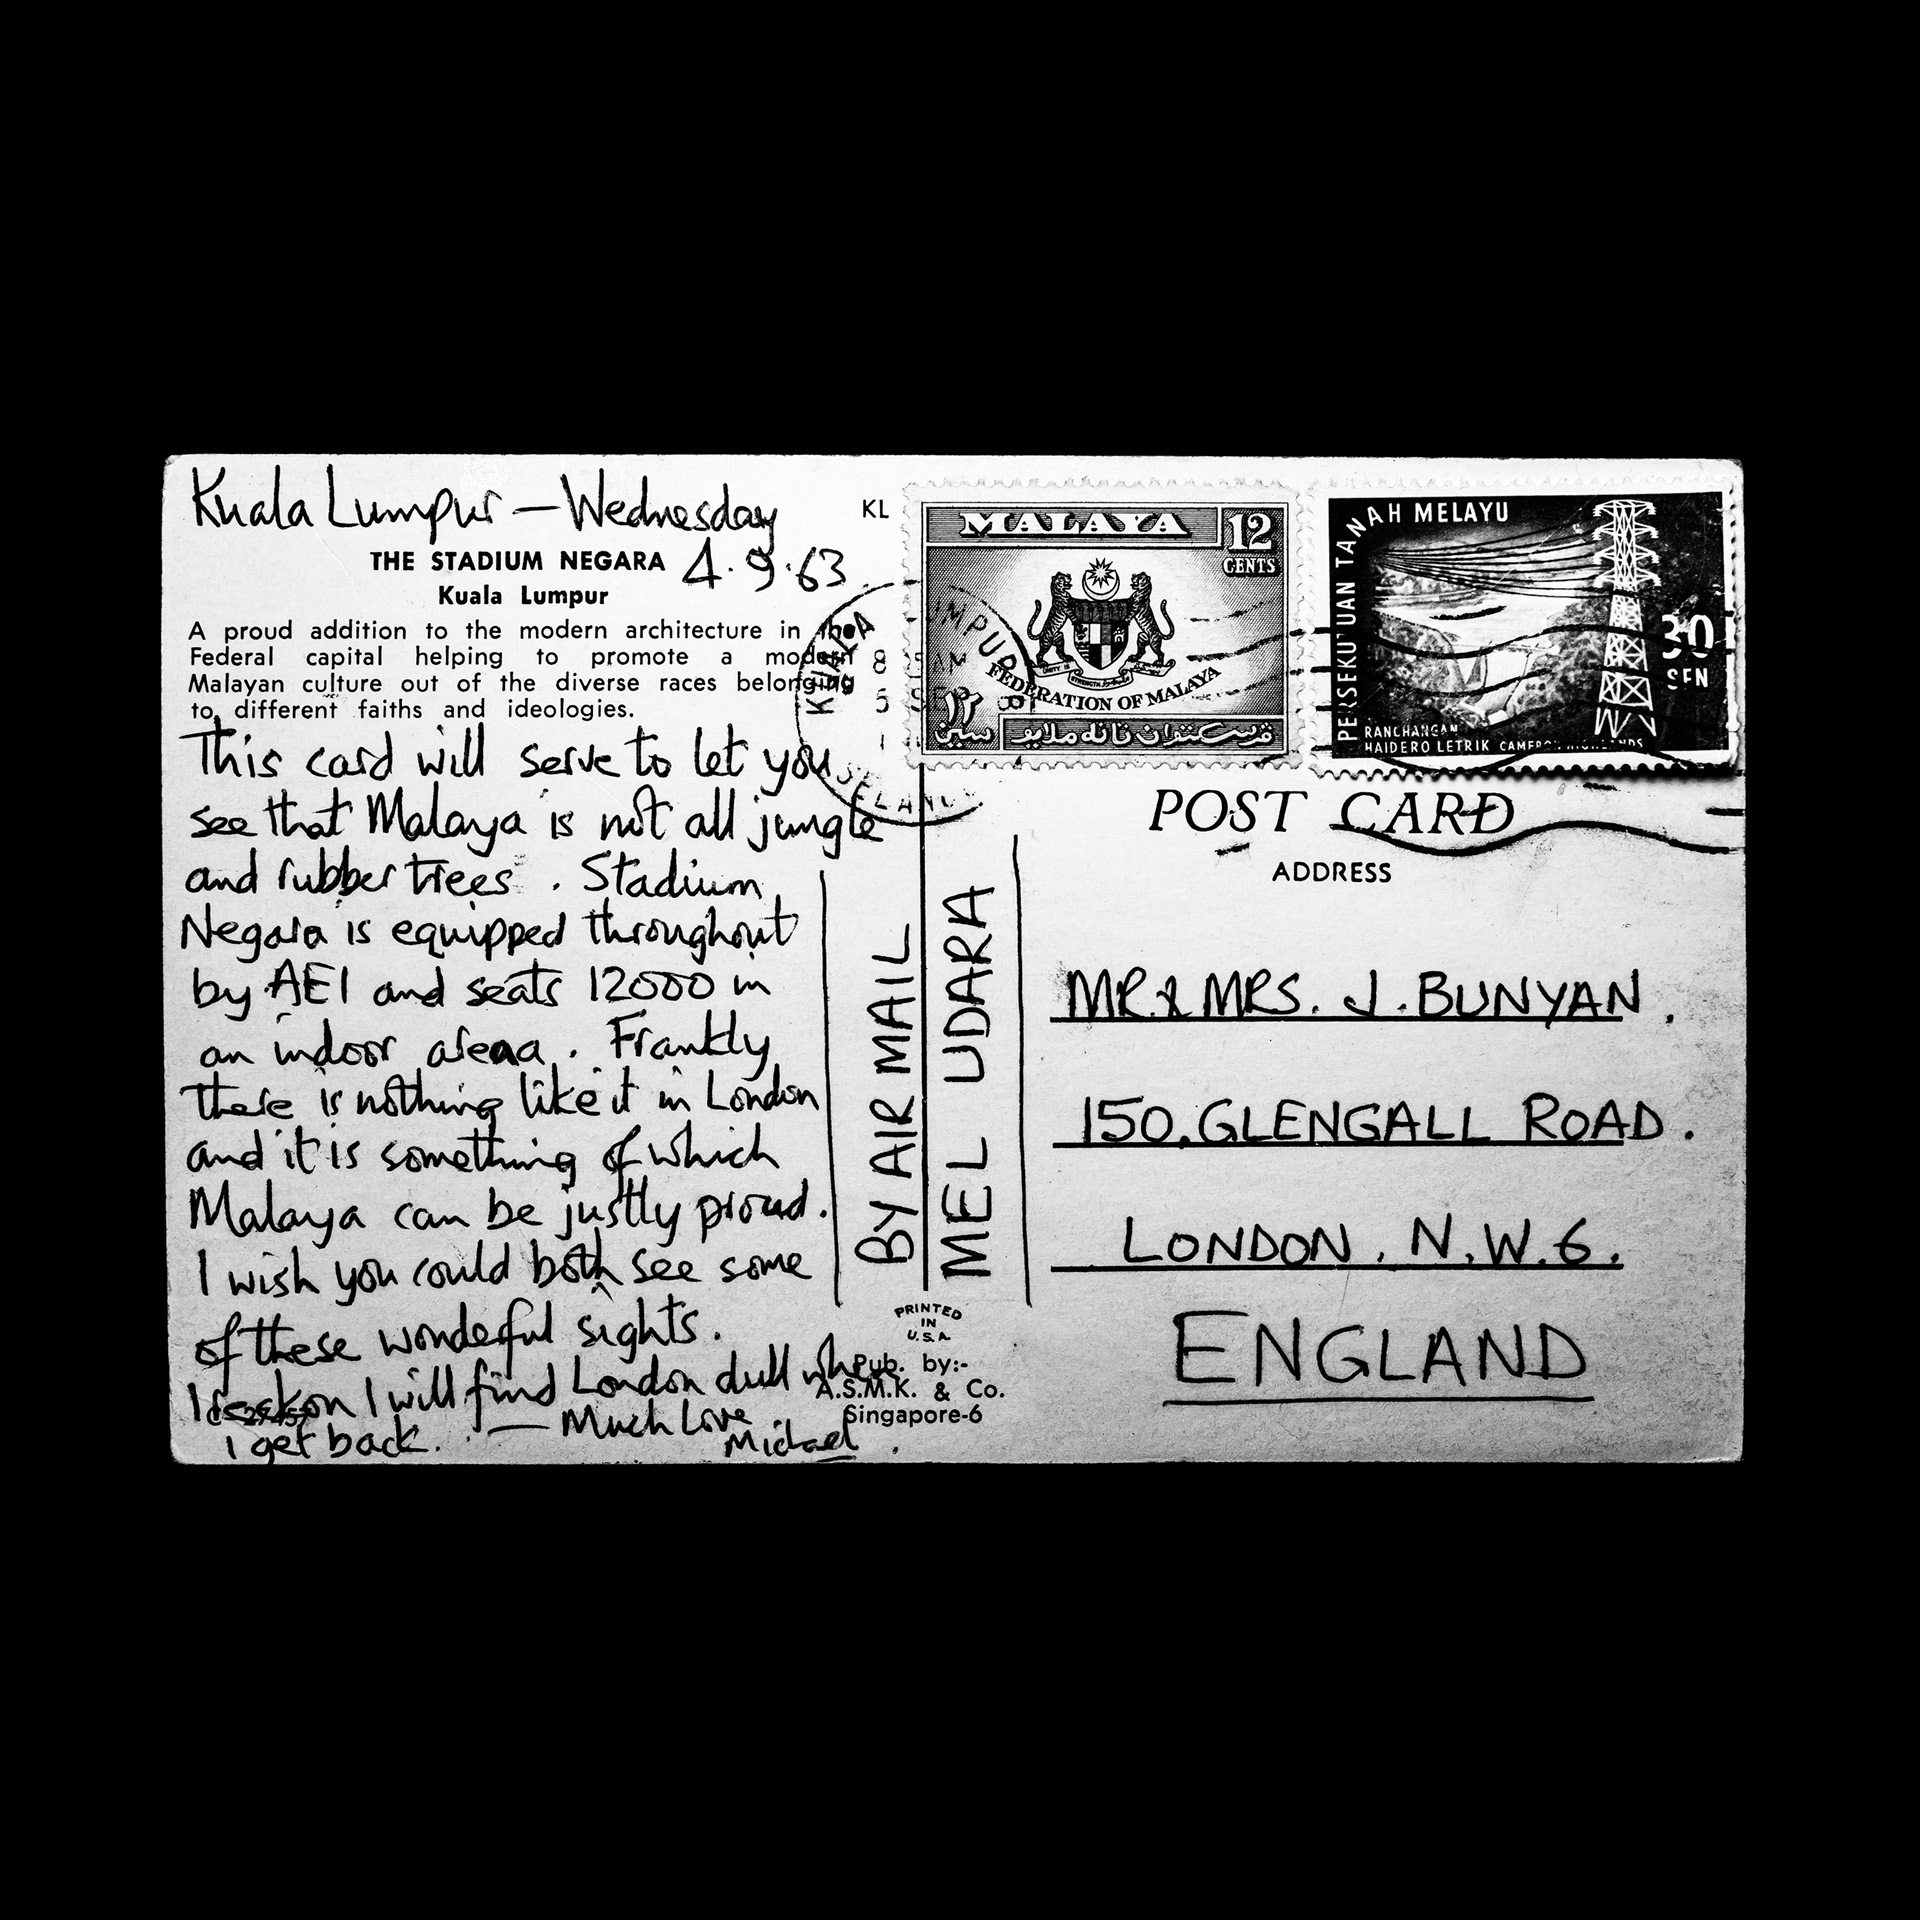 Kuala Lumpur — Wednesday
4.9.63
THE STADIUM NEGARA
Kuala Lumpur
A proud addition to the modern architecture in the
Federal capital helping to promote a modern
Malayan culture out of the diverse races belonging
to different faiths and ideologies.
This card will serve to let you
see that Malaya is not all jungle
and rubber trees. Stadium
Negara is equipped throughout
by AEI and seats 12000 in
an indoor arena. Frankly
there is nothing like it in London
and it is something of which
Malaya can be justly proud.
I wish you could both see some
of these wonderful sights.
I reckon I will find London dull when
I get back. — Much Love
Michael
KL
KUALA LUMPUR
8 AM
5 SEP
SELANGOR
MALAYA
12
CENTS
FEDERATION OF MALAYA
١٢
سين
قرسكتوان تانه ملايو
PERSEKUTUAN TANAH MELAYU
30
SEN
RANCHANGAN
HAIDERO LETRIK CAMERON HIGHLANDS
BY AIR MAIL
MEL UDARA
PRINTED
IN
U.S.A.
Pub. by:-
A.S.M.K. & Co.
Singapore-6
POST CARD
ADDRESS
MR & MRS. J. BUNYAN.
150, GLENGALL ROAD.
LONDON. N.W.6.
ENGLAND